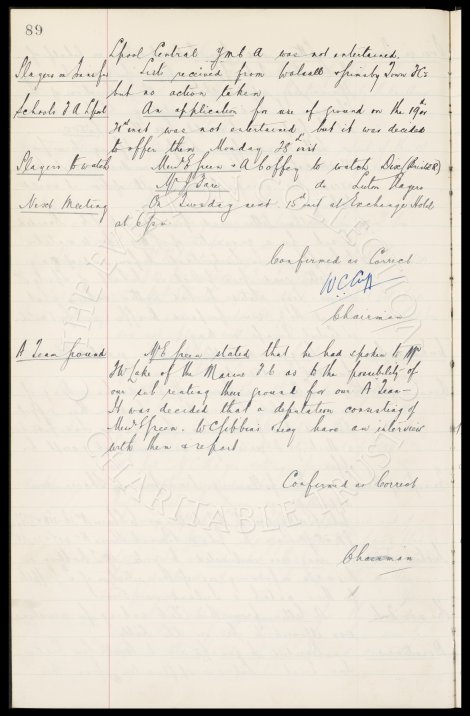 89
Lpool Central Y M C A was not entertained.
Players on Transfer Lists received from Walsall & Grimsby Town FCs
but no action taken
Schools F A Lpool An application for use of ground on the 19th or
21st inst was not entertained but it was decided
to offer them Monday 28th inst
Players to watch Messrs E Green & A Coffey to watch Dixe/Bristol R)
Mr J Fare do Luton Players
Next Meeting On Tuesday next 15th inst at Exchange Hotel
at 6 pm
Confirmed as Correct
W.C. Cuff
Chairman
A Team Ground Mr E Green stated that he had spoken to Mr
of the Marine F C as to the possibility of
our sub renting their ground for our A Team
It was decided that a deputation consisting of
Messrs E Green, W C Gibbins & have an interview
with them & report
Confirmed as Correct
Chairman
THE EVERTON COLLECTION
CHARITABLE TRUST